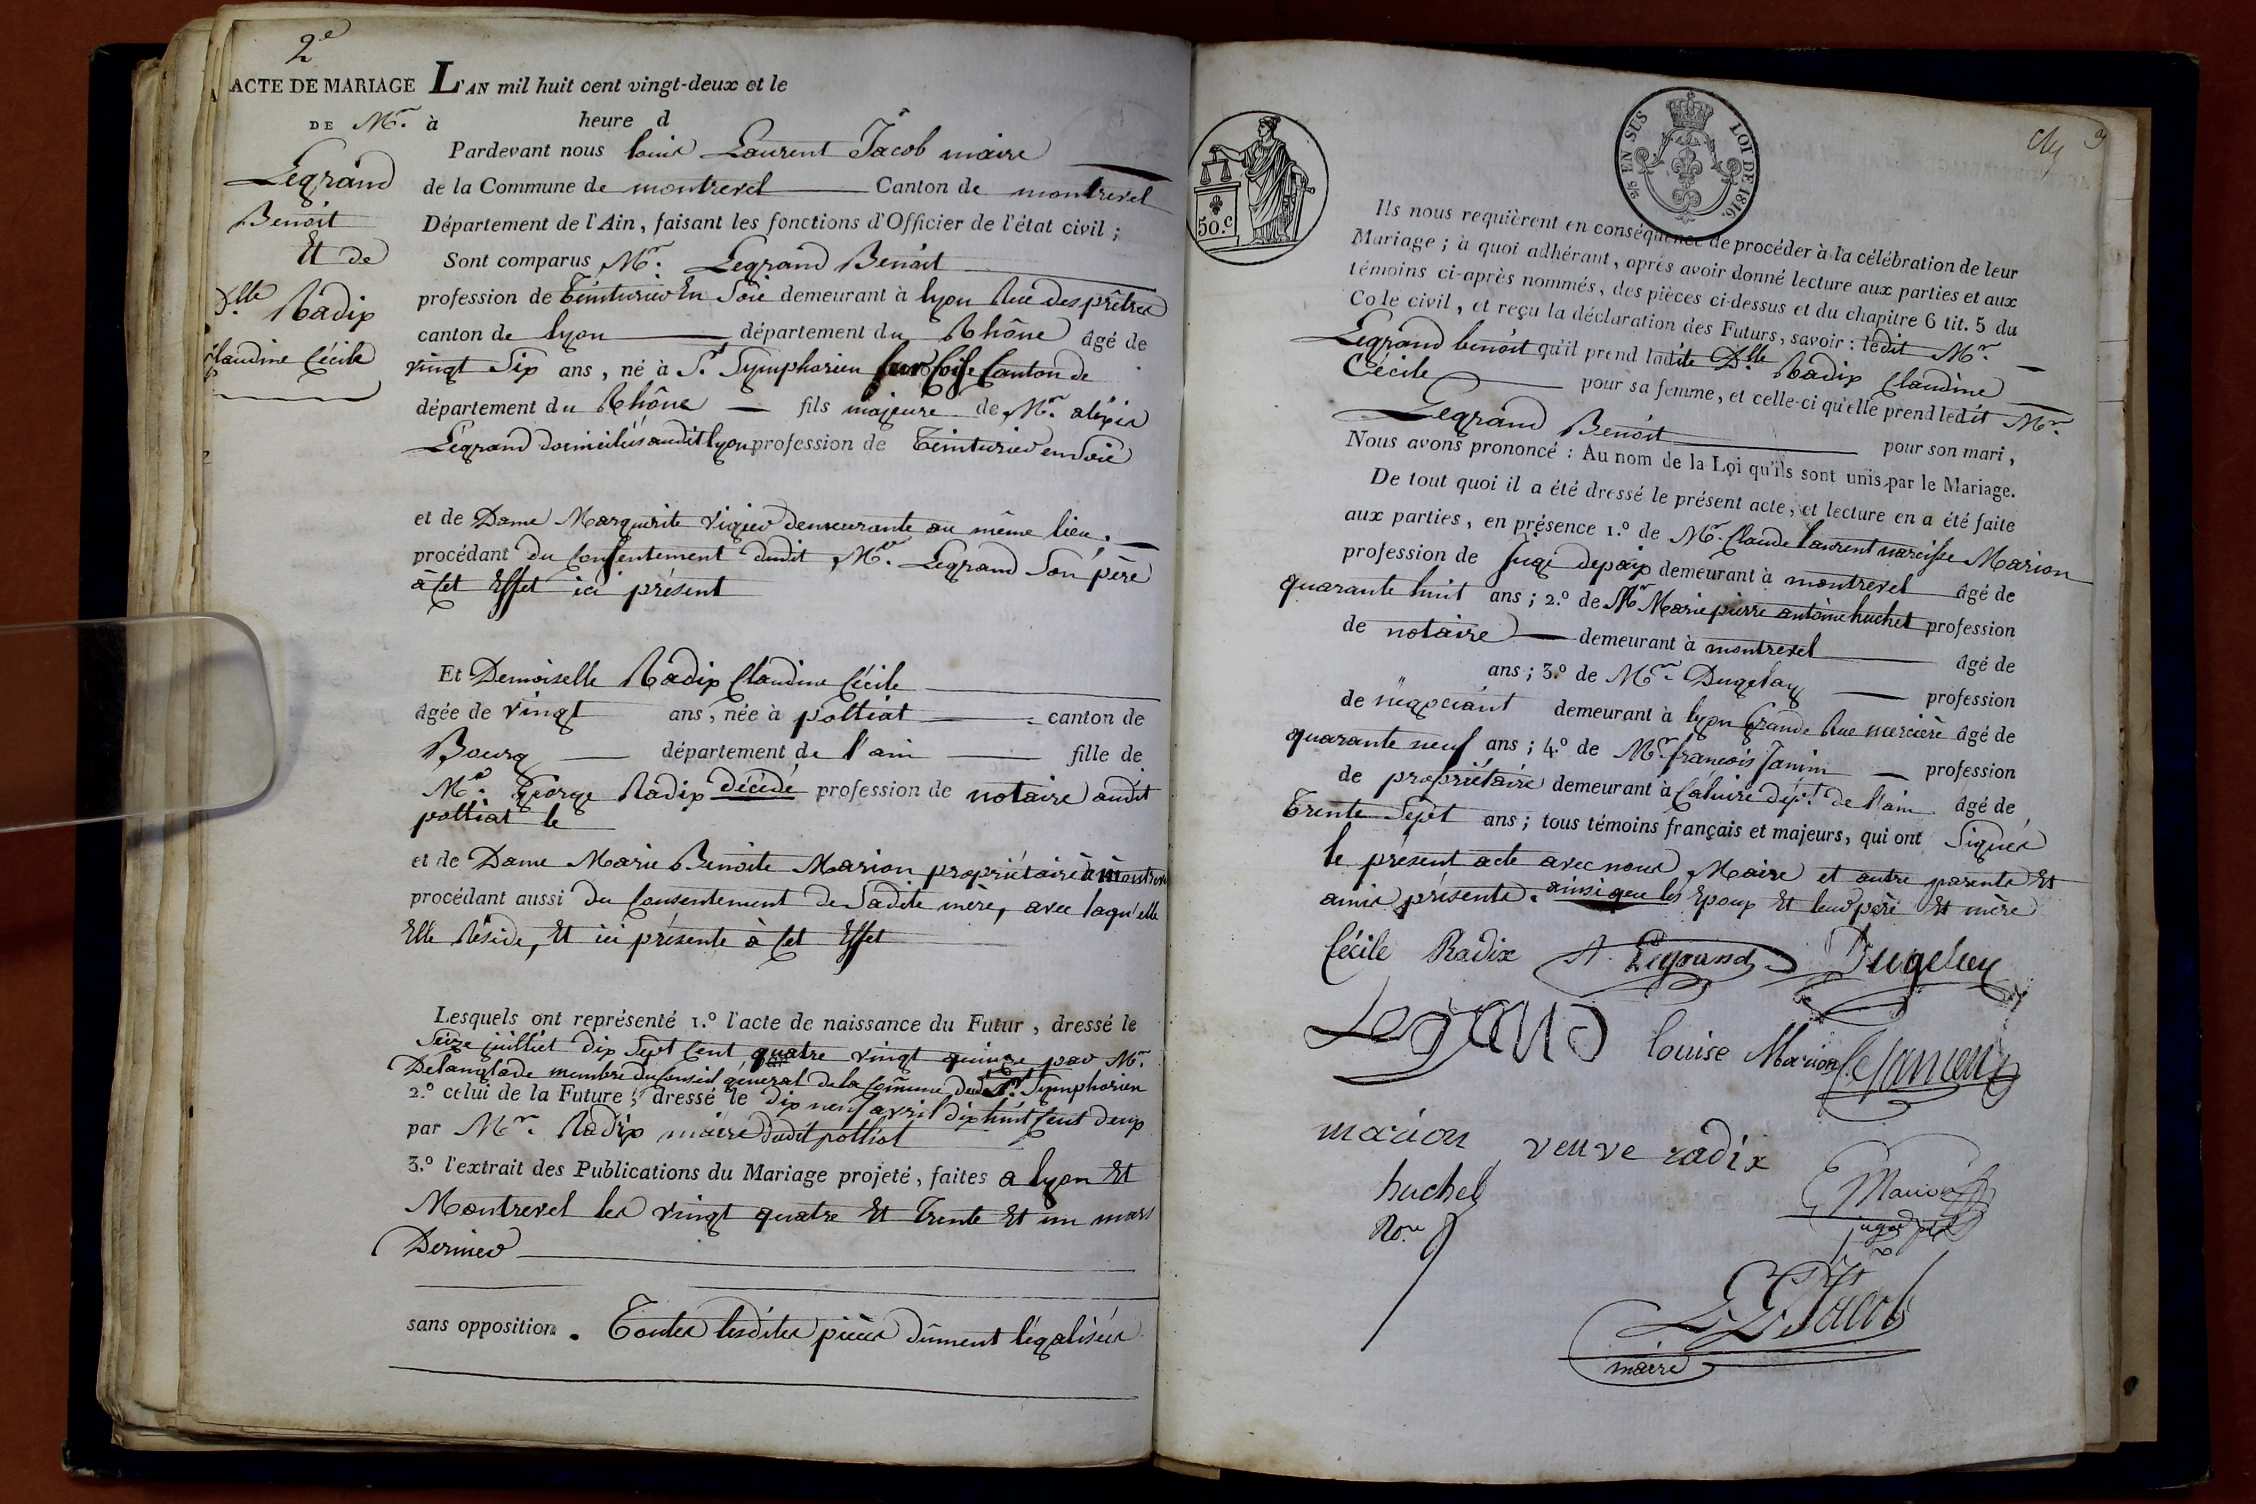 2e
ACTE DE MARIAGE
DE Mr.
Legrand
Benoit
Et de
Dlle Radix
Claudine Cécile
L'AN mil huit cent vingt-deux et le
à heure d
Pardevant nous louis Laurent Jacob maire
de la Commune de montrevel Canton de montrevel
Département de l'Ain, faisant les fonctions d'Officier de l'état civil ;
Sont comparus Mr. Legrand Benoit
profession de Teinturier En Soie demeurant à lyon Rue des prêtres
canton de lyon département du Rhône âgé de
vingt Six ans, né à St. Symphorien sur Coise Canton de
département du Rhône fils majeure de Mr. alexis
Legrand domiciliés audit lyon profession de Teinturier en Soie
et de Dame Marguerite Vigier demeurante au même lieu.
procédant du Consentement dudit Mr. Legrand Son père
à Cet Effet ici présent
Et Demoiselle Radix Claudine Cécile
âgée de vingt ans, née à polliat canton de
Bourg département de l'ain fille de
Mr. George Radix décédé profession de notaire audit
polliat le
et de Dame Marie Benoite Marion propriétaire à montrevel
procédant aussi du Consentement de Sadite mère, avec laquelle
Elle Réside, Et ici présente à Cet Effet
Lesquels ont représenté 1.º l'acte de naissance du Futur, dressé le
Seize juilliet dix Sept Cent quatre vingt quinze par Mr.
Delanglade membre du Conseil général de la Commune dudit St. Symphorien
2.º celui de la Future ; dressé le dix neuf avril dix huit Cent deux
par Mr. Radix maire dudit polliat
3.º l'extrait des Publications du Mariage projeté, faites a lyon Et
Montrevel les vingt quatre Et Trente Et un mars
Dernier
sans opposition. Toutes lesdites pièces dûment légalisées
50.c
EN SUS LOI DE 1816.
Ils nous requièrent en conséquence de procéder à la célébration de leur
Mariage ; à quoi adhérant, après avoir donné lecture aux parties et aux
témoins ci-après nommés, des pièces ci-dessus et du chapitre 6 tit. 5 du
Code civil, et reçu la déclaration des Futurs, savoir : ledit Mr.
Legrand benoit qu'il prend ladite Dlle Radix Claudine
Cécile pour sa femme, et celle-ci qu'elle prend ledit Mr.
Legrand Benoit pour son mari,
Nous avons prononcé : Au nom de la Loi qu'ils sont unis par le Mariage.
De tout quoi il a été dressé le présent acte, et lecture en a été faite
aux parties, en présence 1.º de Mr. Claude laurent narcisse Marion
profession de juge de paix demeurant à montrevel âgé de
quarante huit ans ; 2.º de Mr Marie pierre antoine huchet profession
de notaire demeurant à montrevel âgé de
ans ; 3.º de Mr. Dugelay profession
de négociant demeurant à lyon Grande Rue mercière âgé de
quarante neuf ans ; 4.º de Mr. francois Janin profession
de propriétaire demeurant à Caluire dépt. de l'ain âgé de
Trente Sept ans ; tous témoins français et majeurs, qui ont Signés
le présent acte avec nous Maire et autre parents Et
amis présents. ainsi que les Epoux Et leur père Et mère
Cécile Radix A. Legrand Dugelay
Legrand louise Marion
marion veuve radix
huchet Marion
Nore juge de paix
L L Jacob
maire